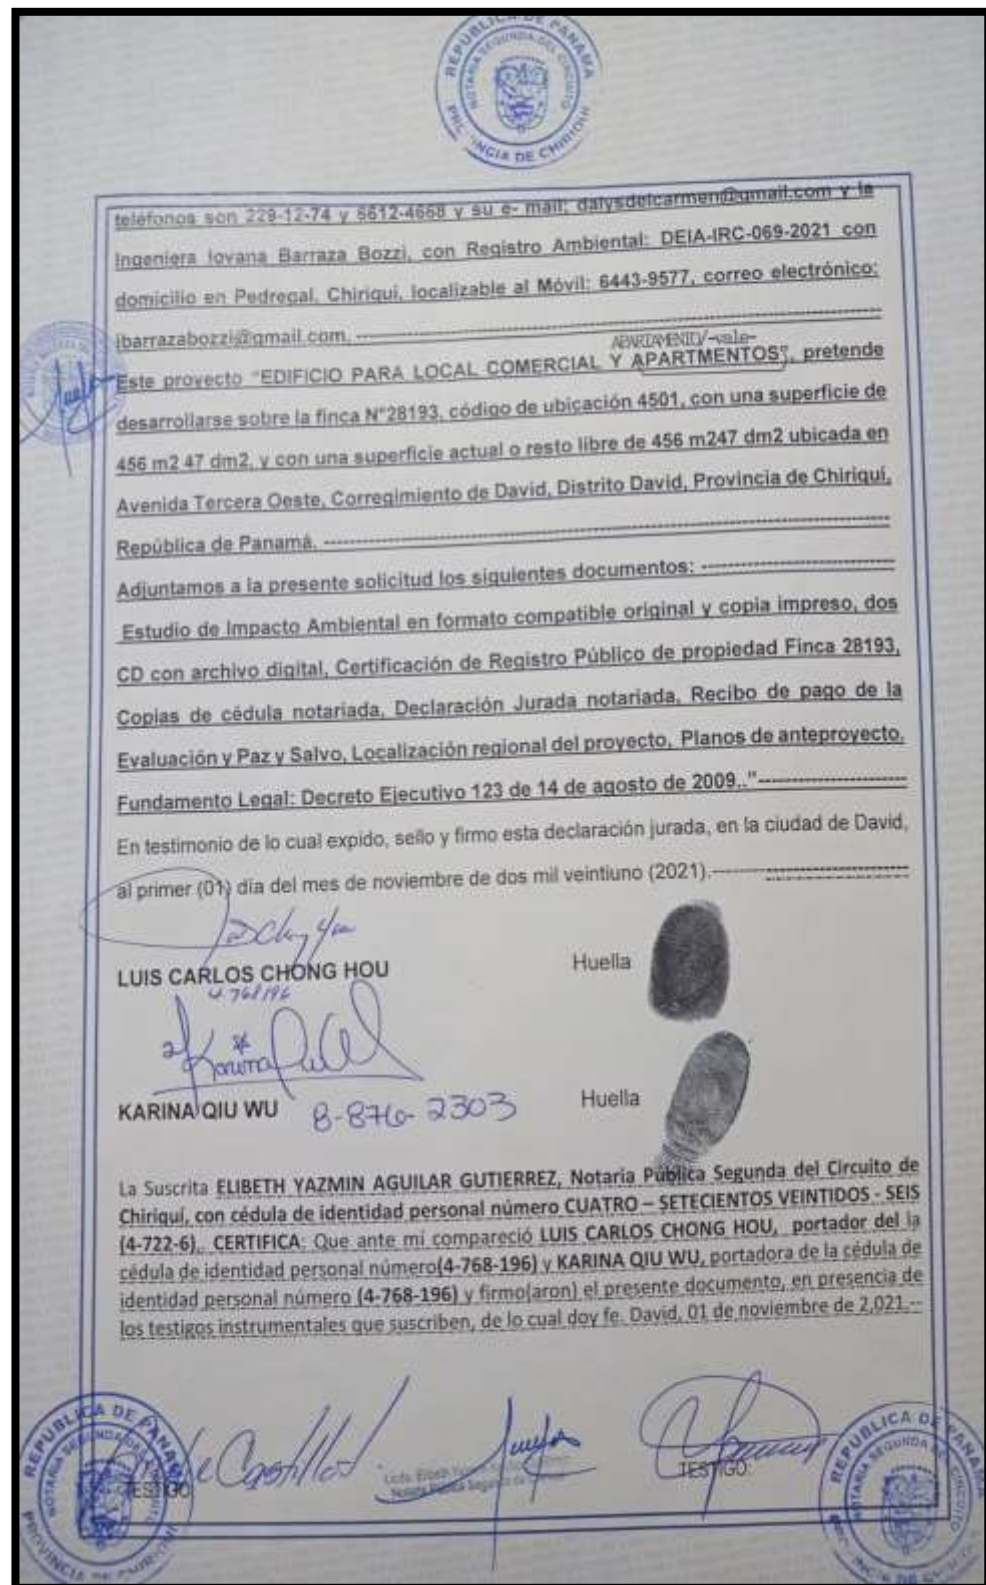 REPÚBLICA DE PANAMA
NOTARIA SEGUNDA DEL CIRCUITO
PROVINCIA DE CHIRIQUI
teléfonos son 229-12-74 y 6612-4668 y su e- mail: dalysdelcarmen@gmail.com y la
Ingeniera Iovana Barraza Bozzi, con Registro Ambiental: DEIA-IRC-069-2021 con
domicilio en Pedregal, Chiriqui, localizable al Móvil: 6443-9577, correo electrónico:
ibarrazabozzi@gmail.com. ---
APARTAMENTO/-vale-
Este proyecto "EDIFICIO PARA LOCAL COMERCIAL Y APARTMENTOS", pretende
desarrollarse sobre la finca N°28193, código de ubicación 4501, con una superficie de
456 m2 47 dm2, y con una superficie actual o resto libre de 456 m247 dm2 ubicada en
Avenida Tercera Oeste, Corregimiento de David, Distrito David, Provincia de Chiriquí,
República de Panamá. ---
Adjuntamos a la presente solicitud los siguientes documentos: ---
Estudio de Impacto Ambiental en formato compatible original y copia impreso, dos
CD con archivo digital, Certificación de Registro Público de propiedad Finca 28193,
Copias de cédula notariada, Declaración Jurada notariada, Recibo de pago de la
Evaluación y Paz y Salvo, Localización regional del proyecto, Planos de anteproyecto.
Fundamento Legal: Decreto Ejecutivo 123 de 14 de agosto de 2009.."---
En testimonio de lo cual expido, sello y firmo esta declaración jurada, en la ciudad de David,
al primer (01) día del mes de noviembre de dos mil veintiuno (2021).---
LUIS CARLOS CHONG HOU Huella
4-768196
Karina
KARINA QIU WU 8-876-2303 Huella
La Suscrita ELIBETH YAZMIN AGUILAR GUTIERREZ, Notaria Pública Segunda del Circuito de
Chiriquí, con cédula de identidad personal número CUATRO – SETECIENTOS VEINTIDOS - SEIS
(4-722-6), CERTIFICA: Que ante mi compareció LUIS CARLOS CHONG HOU, portador del la
cédula de identidad personal número(4-768-196) y KARINA QIU WU, portadora de la cédula de
identidad personal número (4-768-196) y firmo(aron) el presente documento, en presencia de
los testigos instrumentales que suscriben, de lo cual doy fe. David, 01 de noviembre de 2,021.--
Castillo
TESTIGO TESTIGO
REPÚBLICA DE PANAMA
NOTARIA SEGUNDA DEL CIRCUITO
PROVINCIA DE CHIRIQUI
REPÚBLICA DE PANAMA
SEGUNDA DEL CIRCUITO